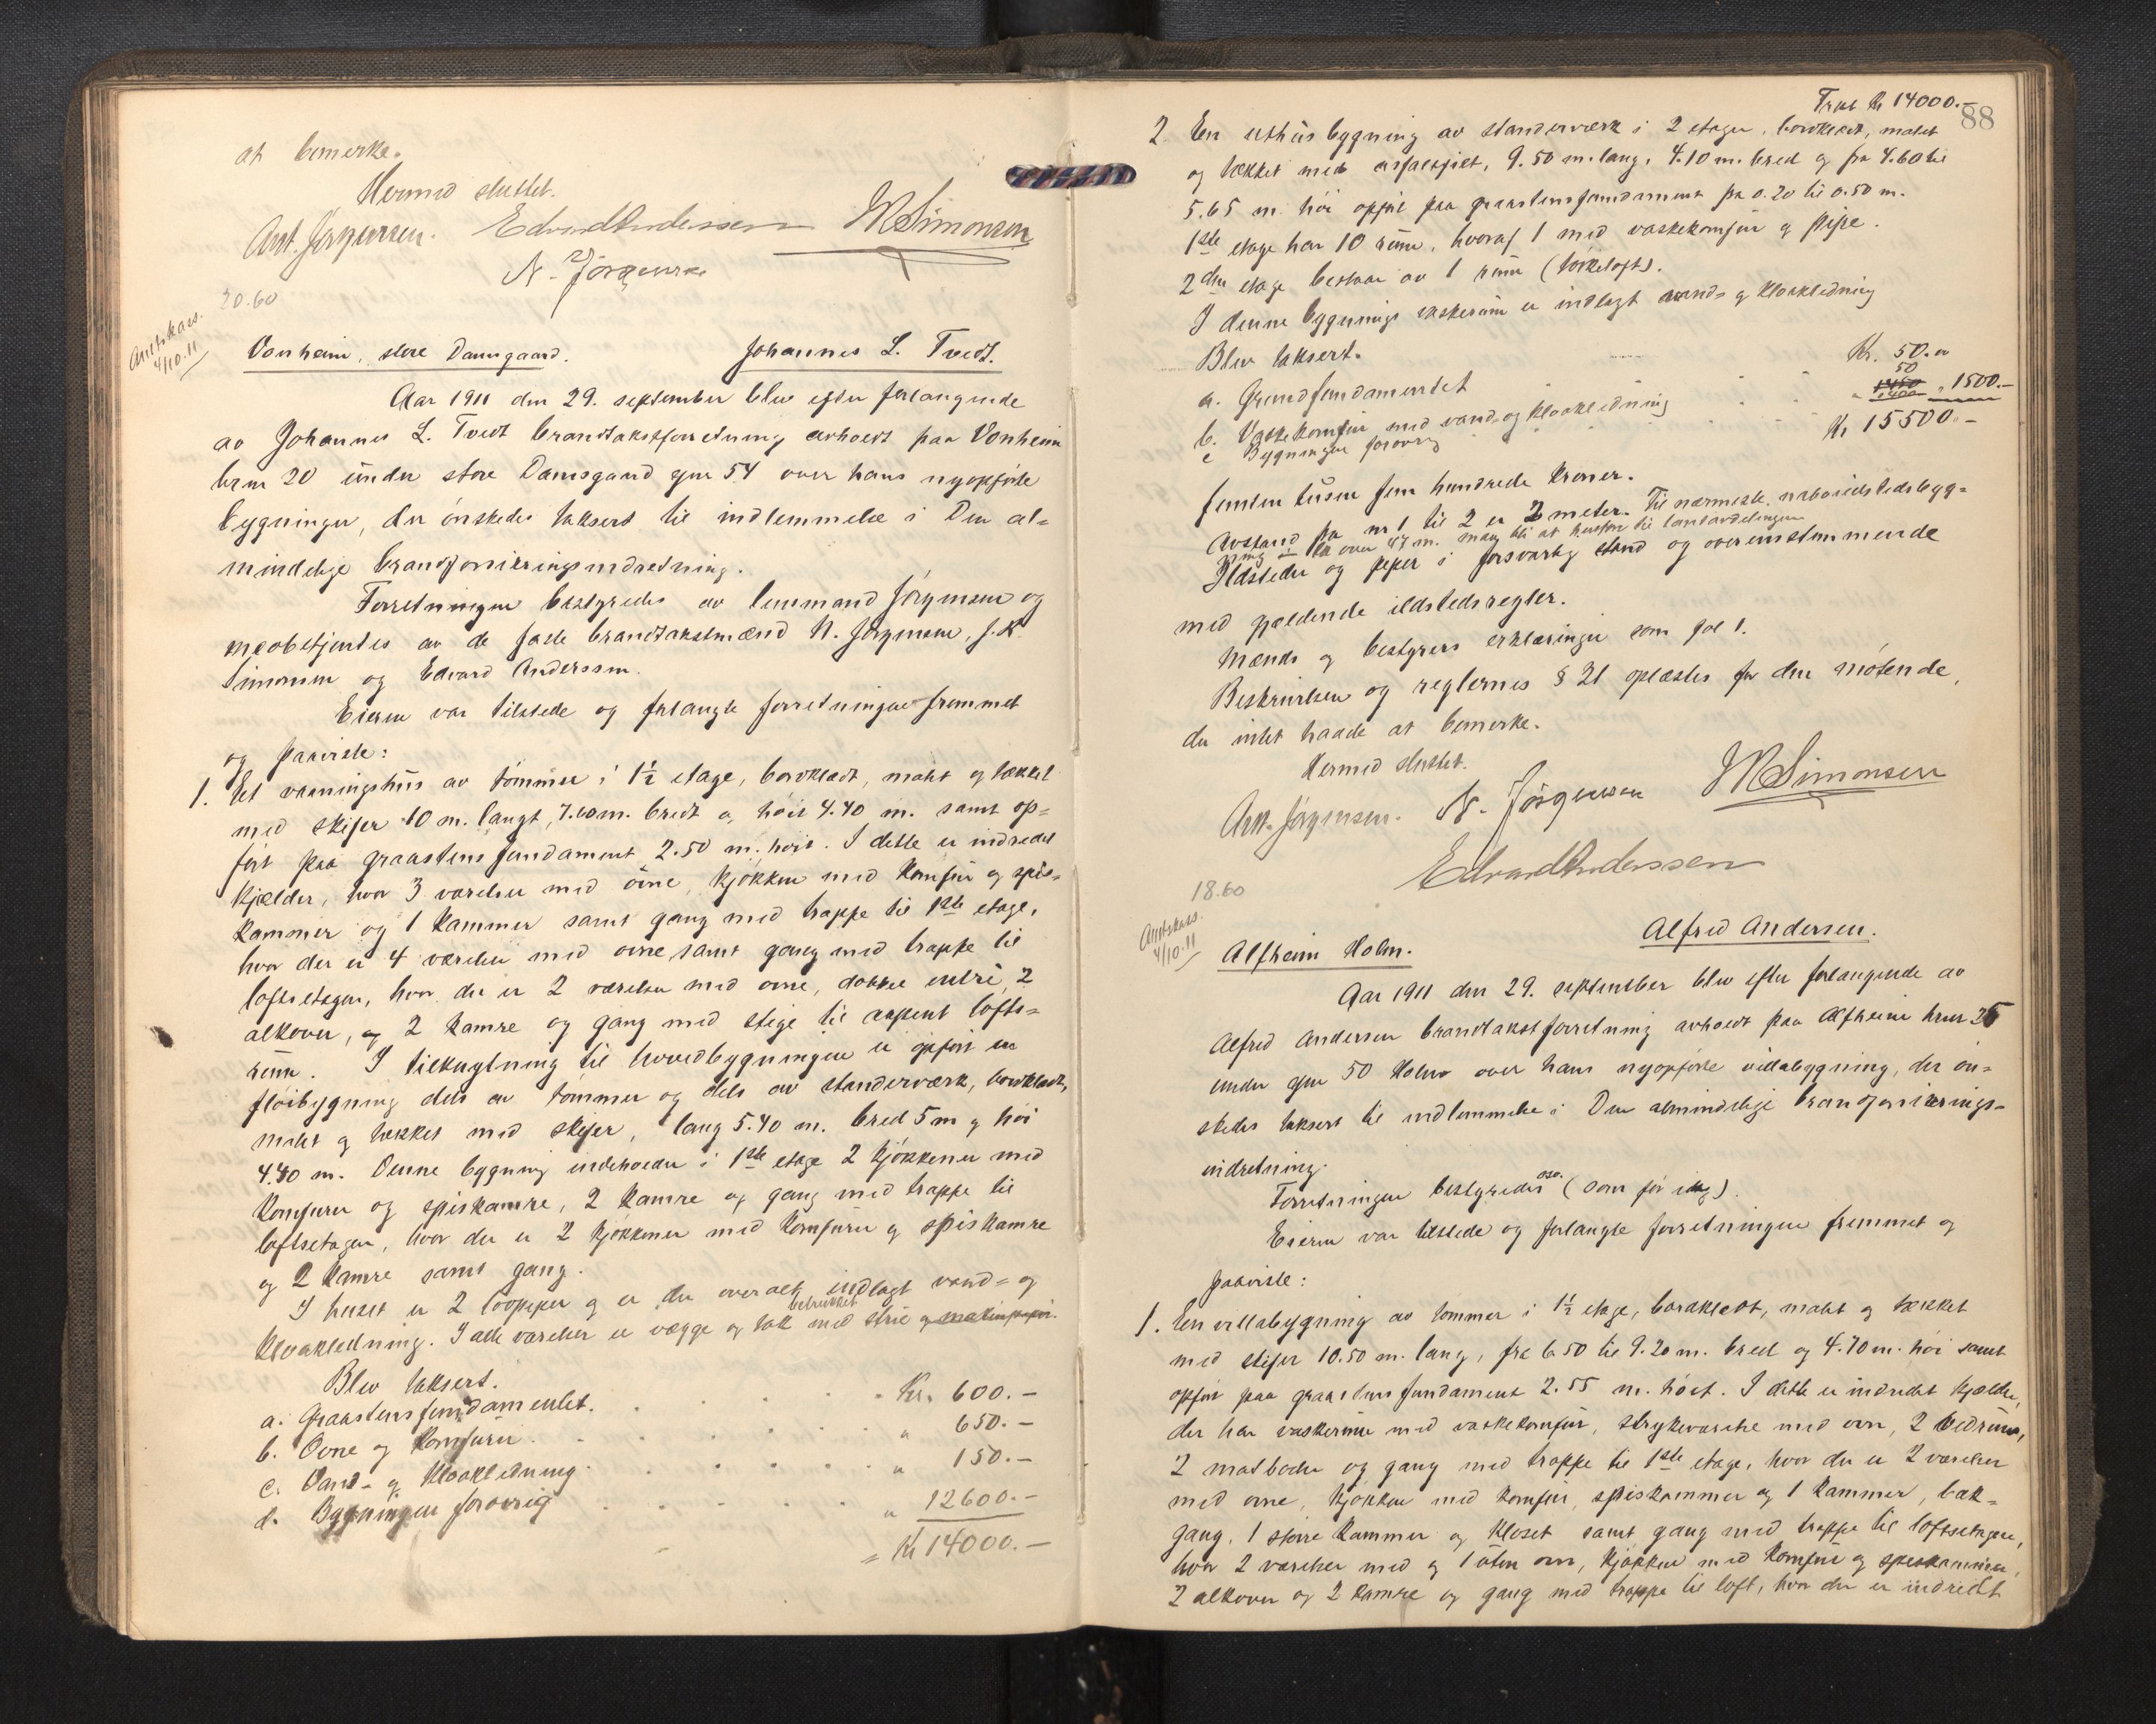 at bemerke.
Hermed sluttet.
Ant. Jørgensen. Edvard Anderssen JK Simonsen
N. Jörgensen
20.60
Amtskass.
4/10.11
Vonheim, store Damsgaard. Johannes L. Tvedt.
Aar 1911 den 29. september blev efter forlangende
av Johannes L. Tvedt brandtakstforretning avholdt paa Vonheim
brnr 20 under store Damsgaard gnr 54 over hans nyopførte
bygninger, der ønskedes taksert til indlemmelse i Den al-
mindelige brandforsikringsindretning.
Forretningen bestyredes av lensmand Jørgensen og
medbetjentes av de faste brandtakstmænd N. Jørgensen, J. K.
Simonsen og Edvard Anderssen.
Eieren var tilstede og forlangte forretningen fremmet
og paaviste:
1. Et vaaningshus av tømmer i 1½ etage, bordklædt, malet og tækket
med skifer 10 m. langt, 7.60 m. bredt og høit 4.40 m. samt op-
ført paa graastensfundament 2.50 m. høit. I dette er indredet
kjælder, hvor 3 værelser med ovne, kjøkken med komfur og spis-
kammer og 1 kammer samt gang med trappe til 1ste etage,
hvor der er 4 værelser med ovne samt gang med trappe til
loftsetagen, hvor der er 2 værelser med ovne, dobbel entré, 2
alkover, og 2 kamre og gang med stige til aapent lofts-
rum. I tilknytning til hovedbygningen er opført en
fløibygning dels av tømmer og dels av standerværk, bordklædt,
malet og tækket med skifer, lang 5.40 m. bred 5 m og høi
4.40 m. Denne bygning indeholder i 1ste etage 2 kjøkkener med
komfurer og spiskamre, 2 kamre og gang med trappe til
loftsetagen, hvor der er 2 kjøkkener med komfurer og spiskamre
og 2 kamre samt gang.
I huset er 2 løppiper og er der overalt indlagt vand- og
kloakledning. I alle værelser er vægge og tak betrukket med strie og maskinpapir.
Blev taksert.
a. Graastensfundamentet. Kr. 600.-
b. Ovne og komfurer. " 650.-
c. Vand- og kloakledning. " 150.-
d. Bygningen forøvrig " 12600.-
= Kr 14000.-
88
Trsp. Kr 14000.-
2. En uthusbygning av standerværk i 2 etager, bordklædt, malet
og tækket med asfaltfilt, 9.50 m. lang, 4.10 m. bred og fra 4.60 til
5.65 m. høi opført paa graastensfundament fra 0.20 til 0.50 m.
1ste etage har 10 rum, hvoraf 1 med vaskekomfur og pipe.
2den etage bestaar av 1 rum (tørkeloft).
I denne bygnings vaskerum er indlagt vand- og kloakledning
Blev taksert.
a. Grundfundamentet Kr. 50.00
b. Vaskekomfur med vand- og kloakledning 50
c Bygningen forøvrig " 1400 " 1500.-
Kr 15500.-
femten tusen fem hundrede kroner.
Avstand fra nr 1 til 2 er 2 meter. Til nærmeste nabohildstedsbygg-
ning er der over 47 m.
Ildsteder og piper i forsvarlig stand og overensstemmende
med gjældende ildstedsregler.
Mænds og bestyrers erklæringer som fol 1.
Beskrivelsen og reglernes § 21 oplæstes for den møtende,
der intet hadde at bemerke.
Hermed sluttet.
Ant. Jørgensen. N. Jörgensen JK Simonsen
Edvard Anderssen
18.60
Amtskass.
4/10.11
Alfheim Holm. Alfred Andersen.
Aar 1911 den 29. september blev efter forlangende av
Alfred Andersen brandtakstforretning avholdt paa Alfheim brnr 25
under gnr 50 Holm over hans nyopførte villabygning, der øn-
skedes taksert til indlemmelse i Den almindelige brandforsikrings-
indretning.
Forretningen bestyredes oso. (som før idag).
Eieren var tilstede og forlangte forretningen fremmet og
paaviste:
1. En villabygning av tømmer i 1½ etage, bordklædt, malet og tækket
med skifer 10.50 m. lang, fra 6.50 til 9.20 m. bred og 4.70 m. høi samt
opført paa graastensfundament 2.55 m. høit. I dette er indredet kjælder,
der har vaskerum med vaskekomfur, strykeværelse med ovn, 2 vedrum,
2 matboder og gang med trappe til 1ste etage, hvor der er 2 værelser
med ovne, kjøkken med komfur, spiskammer og 1 kammer, bak-
gang, 1 større kammer og kloset samt gang med trappe til loftsetagen,
hvor 2 værelser med og 1 uten ovn, kjøkken med komfur og spiskammer,
2 alkover og 2 kamre og gang med trappe til loft, hvor der er indredet